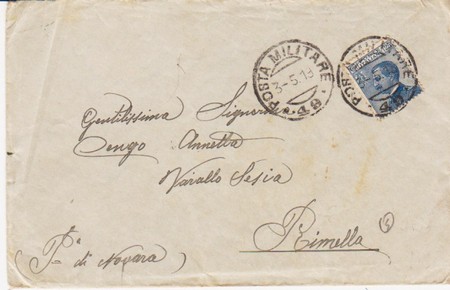 POSTA MILITARE
3-5.19
49
POSTA MILITARE
49
Gentilissima Signora
Annetta
Varallo Sesia
Rimella
(Pª di Novara)